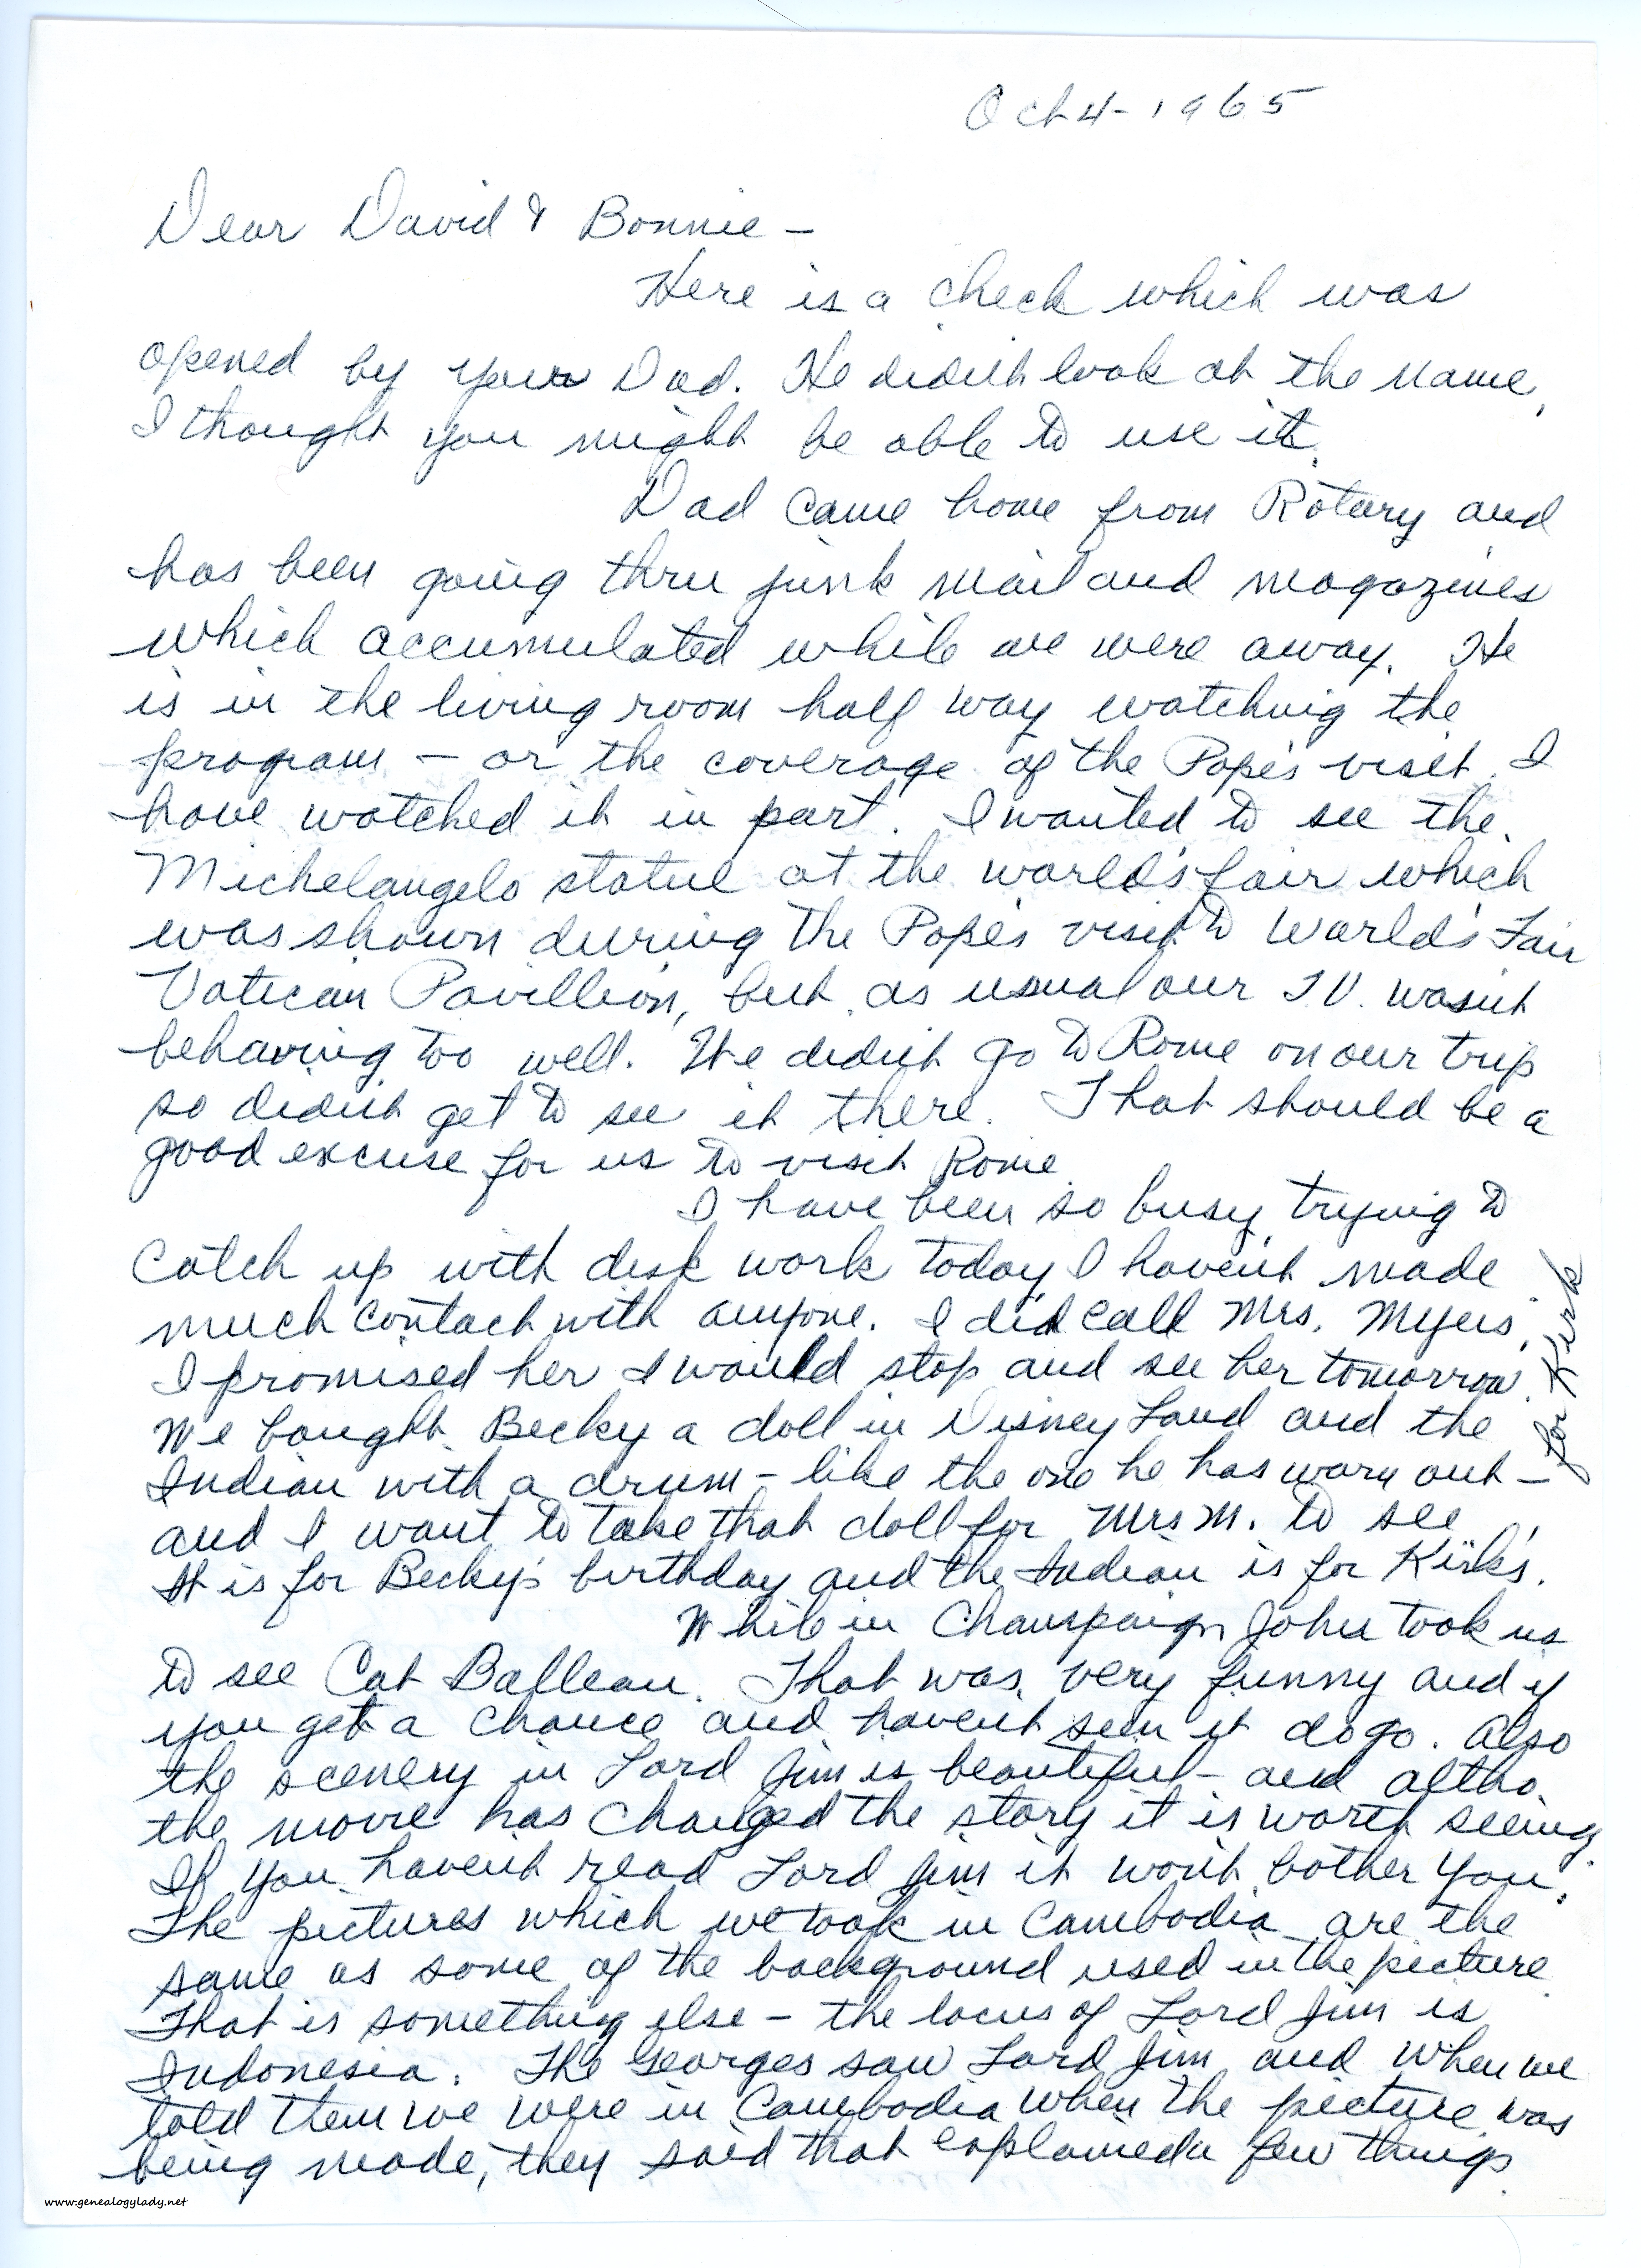 Oct 4 - 1965
Dear David & Bonnie -
Here is a check which was
opened by your Dad. He didn't look at the name,
I thought you might be able to use it.
Dad came home from Rotary and
has been going thru junk mail and magazines
which accumulated while we were away. He
is in the living room half way watching the
program - or the coverage of the Pope's visit. I
have watched it in part. I wanted to see the
Michelangelo statue at the world's fair which
was shown during the Pope's visit to World's Fair
Vatican Pavillion, but as usual our T.V. wasn't
behaving too well. We didn't go to Rome on our trip
so didn't get to see it there. That should be a
good excuse for us to visit Rome.
I have been so busy trying to
catch up with desk work today I haven't made
much contact with anyone. I did call Mrs. Myers,
I promised her I would stop and see her tomorrow.
We bought Becky a doll in Disney Land and the
Indian with a drum - like the one he has worn out -
for Kirk
and I want to take that doll for Mrs M. to see.
It is for Becky's birthday and the Indian is for Kirk's.
While in Champaign John took us
to see Cat Balleau. That was very funny and if
you get a chance and haven't seen it do go. Also
the scenery in Lord Jim is beautiful - and altho
the movie has changed the story it is worth seeing.
If you haven't read Lord Jim it won't bother you.
The pictures which we took in Cambodia are the
same as some of the background used in the picture.
That is something else - the locus of Lord Jim is
Indonesia. The Georges saw Lord Jim and when we
told them we were in Cambodia when the picture was
being made, they said that explained a few things.
www.genealogylady.net